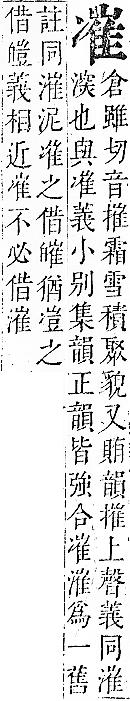 凗
倉雖切音摧霜雪積聚貌又賄韻摧上聲義同漼
渙也與凗義小別集韻正韻皆強合凗漼爲一舊
註同漼泥凗之借皠猶凒之
借皚義相近凗不必借漼